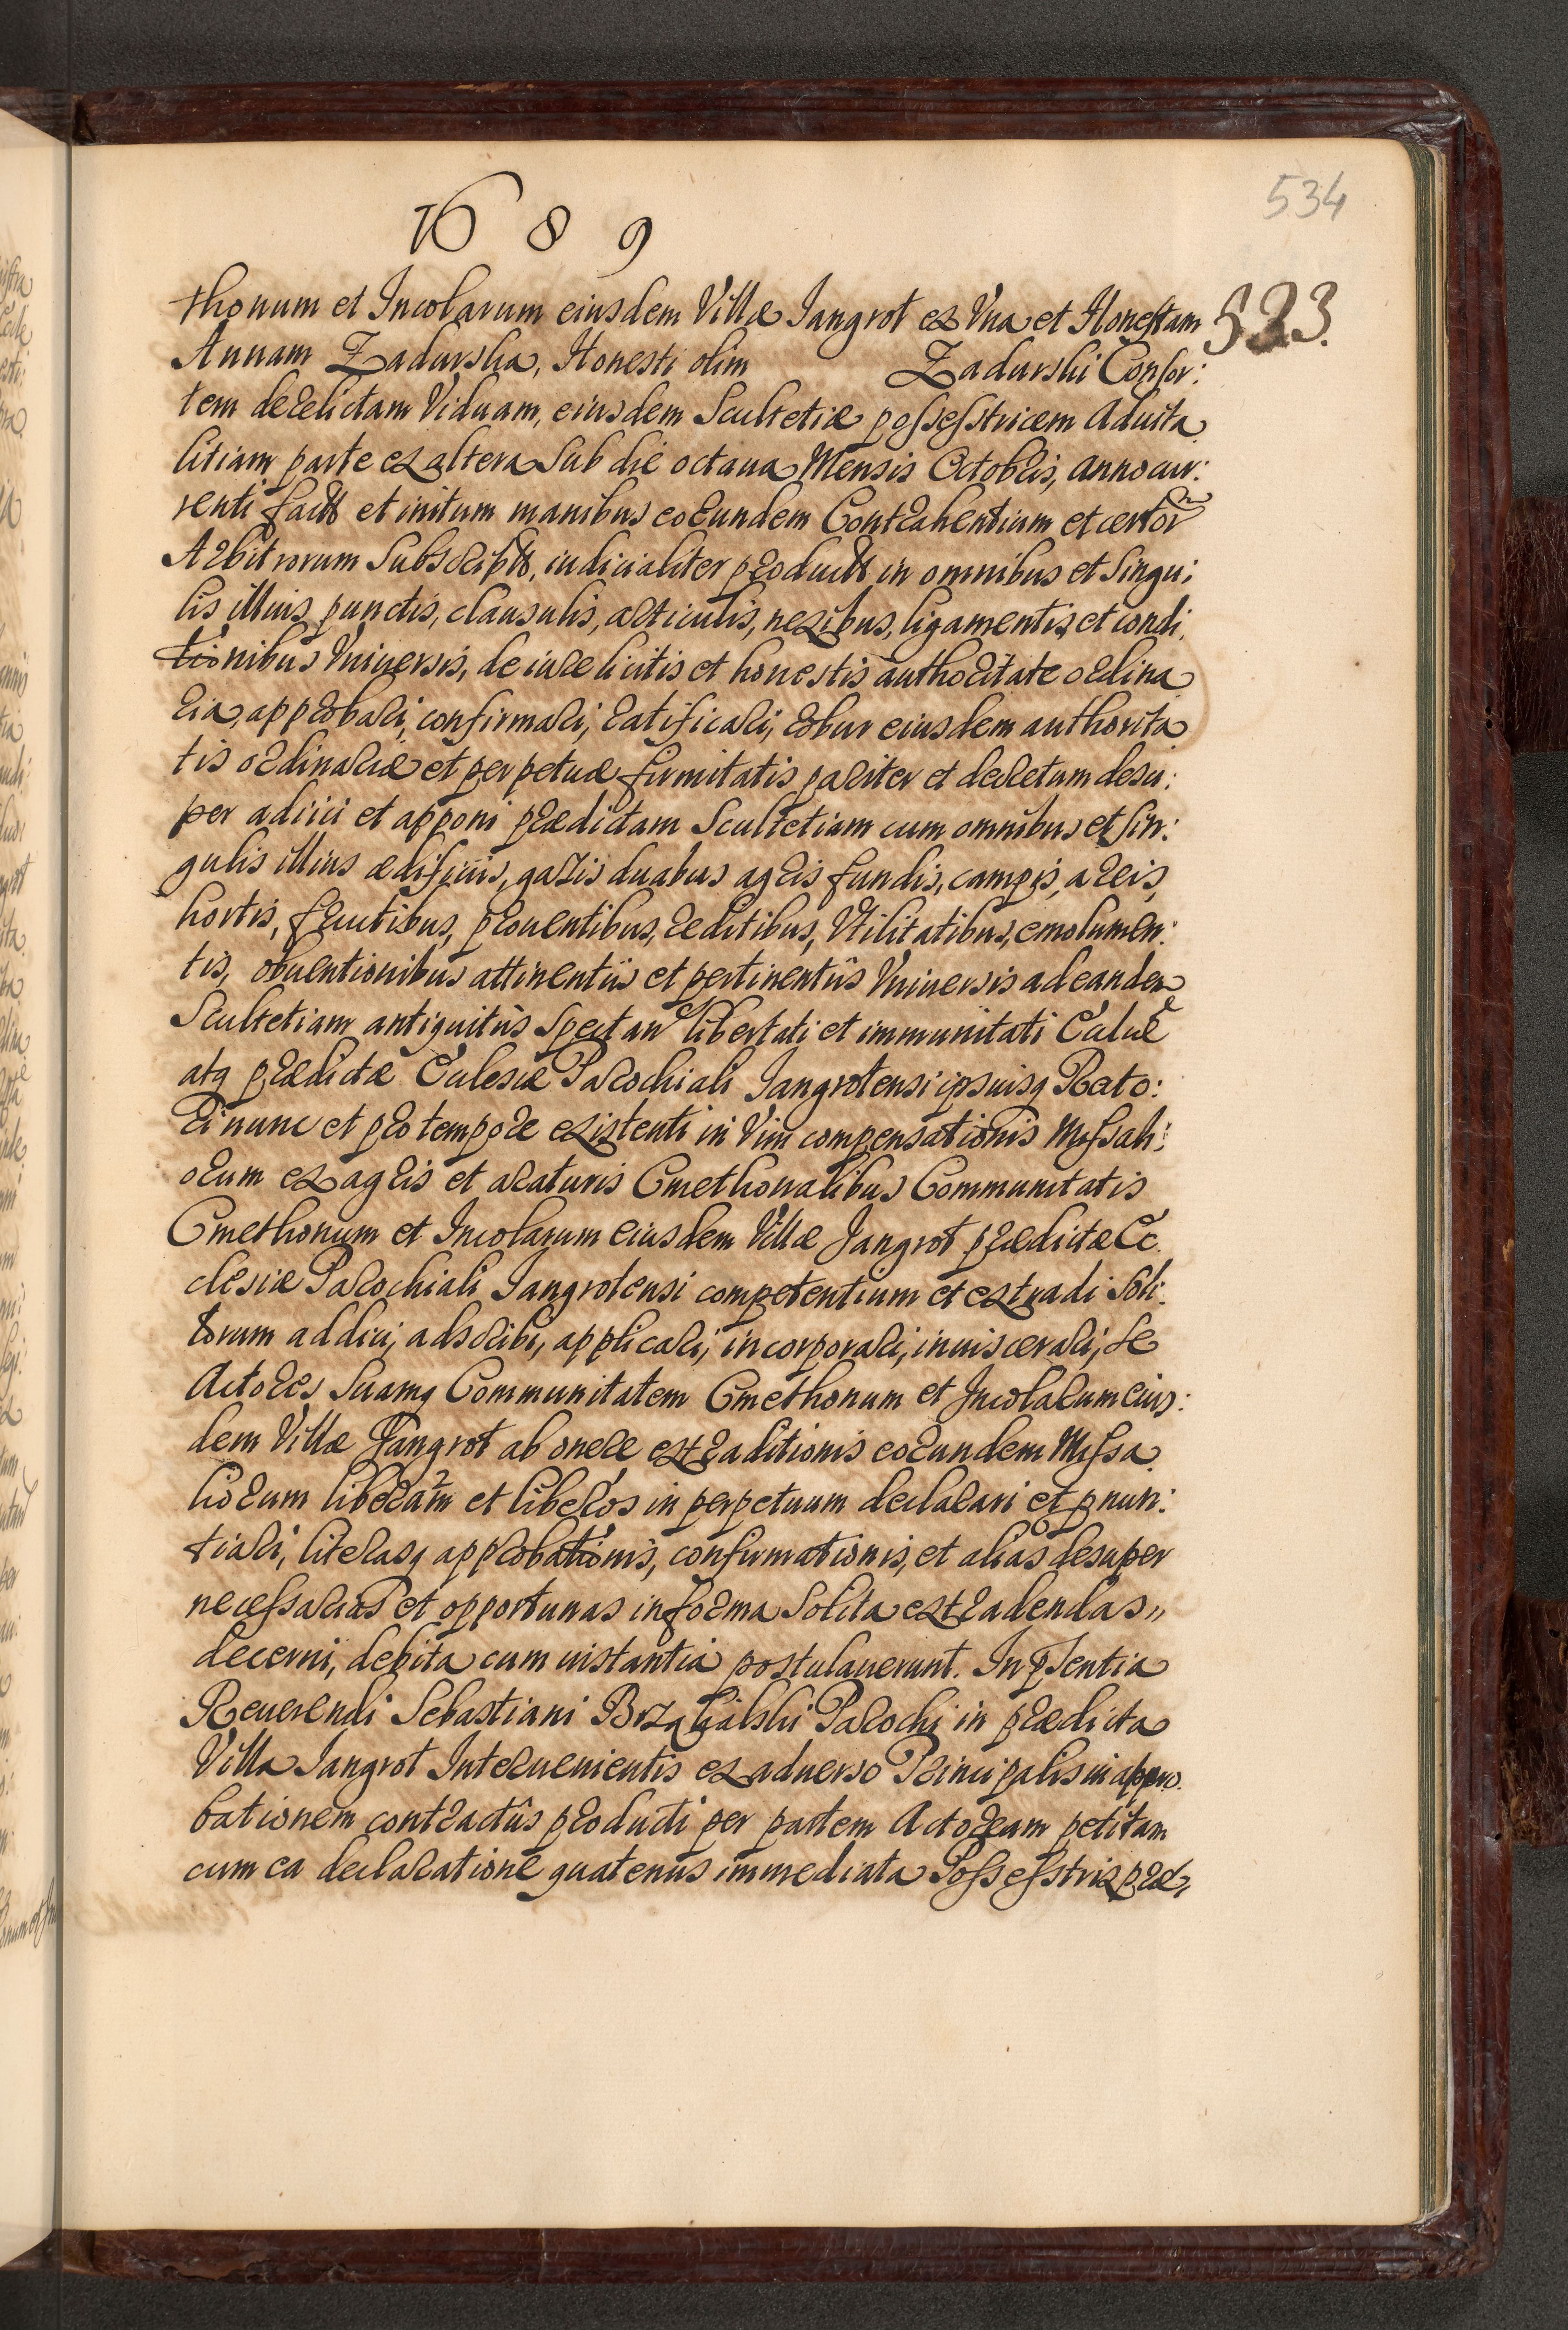 534
1689
523.
thonum et Incolarum eiusdem Villæ Jangrot ex Vna et Honestam
Annam Zadurska, Honesti olim Zadurski Consor:
tem derelictam Viduam, eiusdem Scultetiæ possesstricem Aduita
litiam parte ex altera Sub die octaua Mensis Octobris, anno cur:
renti factt et initum manibus eorundem Contrahentium et certor
Arbitrorum Subscriptt, iudicialiter productt in omnibus et Singu:
lis illius punctis, clausulis, articulis, nexibus, ligamentis et condi
tionibus Vniuersis, de iure licitis et honestis authoritate ordina
ria, approbari, confirmari, ratificari, robur eiusdem authorita
tis ordinariæ et perpetuæ firmitatis pariter et decretum desu:
per adiici et apponi prædictam Scultetiam cum omnibus et sin:
gulis illius ædificiis, gazis duabus agris fundis, campis, areis,
hortis, fructibus, prouentibus, reditibus, Vtilitatibus, emolumen:
tis, obuentionibus attinentiis et pertinentiis Vniuersis ad eandem
Scultetiam antiquitus Spectan libertati et immunitati Ecclæ
atq prædictæ Ecclesiæ Parochiali Jangrotensi ipsiusq Recto:
ri nunc et pro tempore existenti in Vim compensationis Missali:
orum ex agris et araturis Cmethonalibus Communitatis
Cmethonum et Incolarum eiusdem Villæ Jangrot prædictæ Ec
clesiæ Parochiali Jangrotensi competentium et extradi Soli:
torum addici, adscribi, applicari, incorporari, inuiscerari, se
Actores Suamq Communitatem Cmethonum et Incolarum eius:
dem Villæ Jangrot ab onere extraditionis eorundem Missa
liorum liberam et liberos in perpetuum declarari et pnun:
tiari, literasq approbationis, confirmationis, et alias desuper
necessarias et opportunas in forma Solita extradendas,,
decerni, debita cum instantia postulauerunt. In psentia
Reuerendi Sebastiani Parochi in prædicta
Villa Jangrot Interuenientis ex aduerso Principalis in appro
bationem contractus producti per partem Actoream petitam
cum ea declaratione quatenus immediata Possesstrix præ,